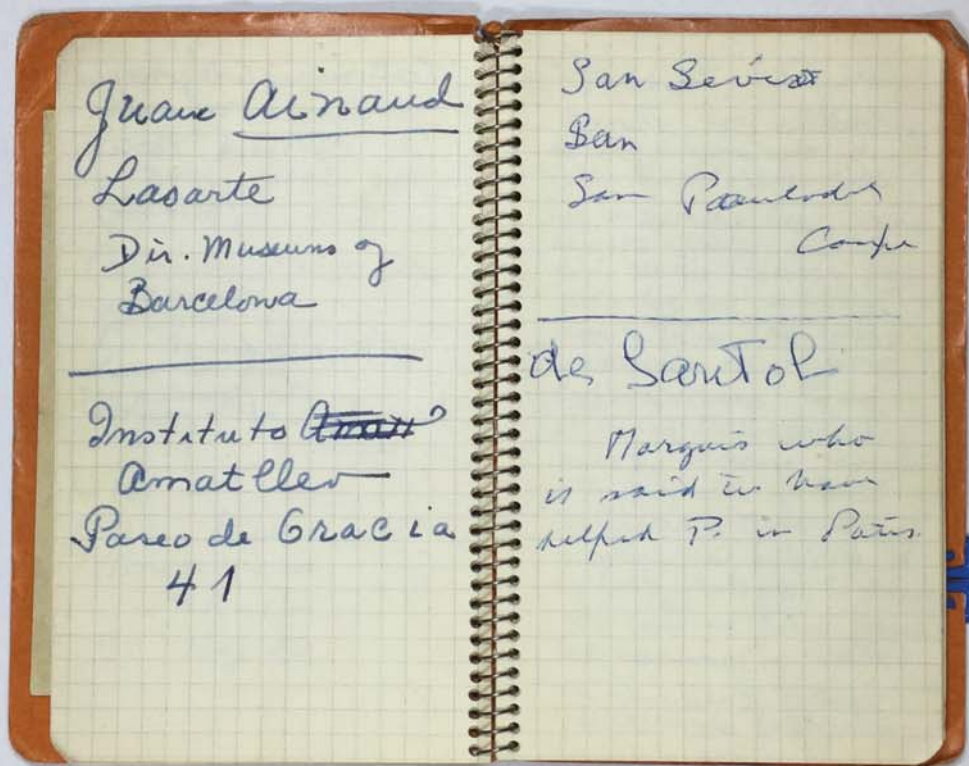 Juan Ainaud
Lasarte
Dir. Museums of
Barcelona
Instituto
Amatller
Paseo de Gracia
41
San
San
San
de Santol
Marquis who
is said to have
helped P. in Paris.